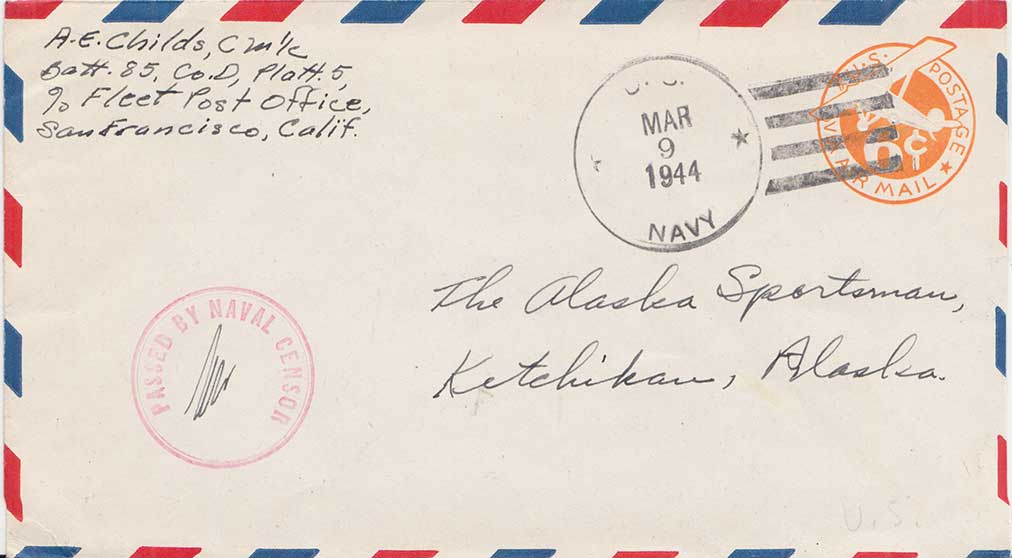 A.E. Childs, CM1/c
Batt. 85, Co. D, Platt. 5,
c/o Fleet Post Office,
San Francisco, Calif.
U.S.
MAR
9
1944
NAVY
U.S. POSTAGE
VIA AIR MAIL
6¢
The Alaska Sportsman,
Ketchikan, Alaska.
PASSED BY NAVAL CENSOR
U.S.